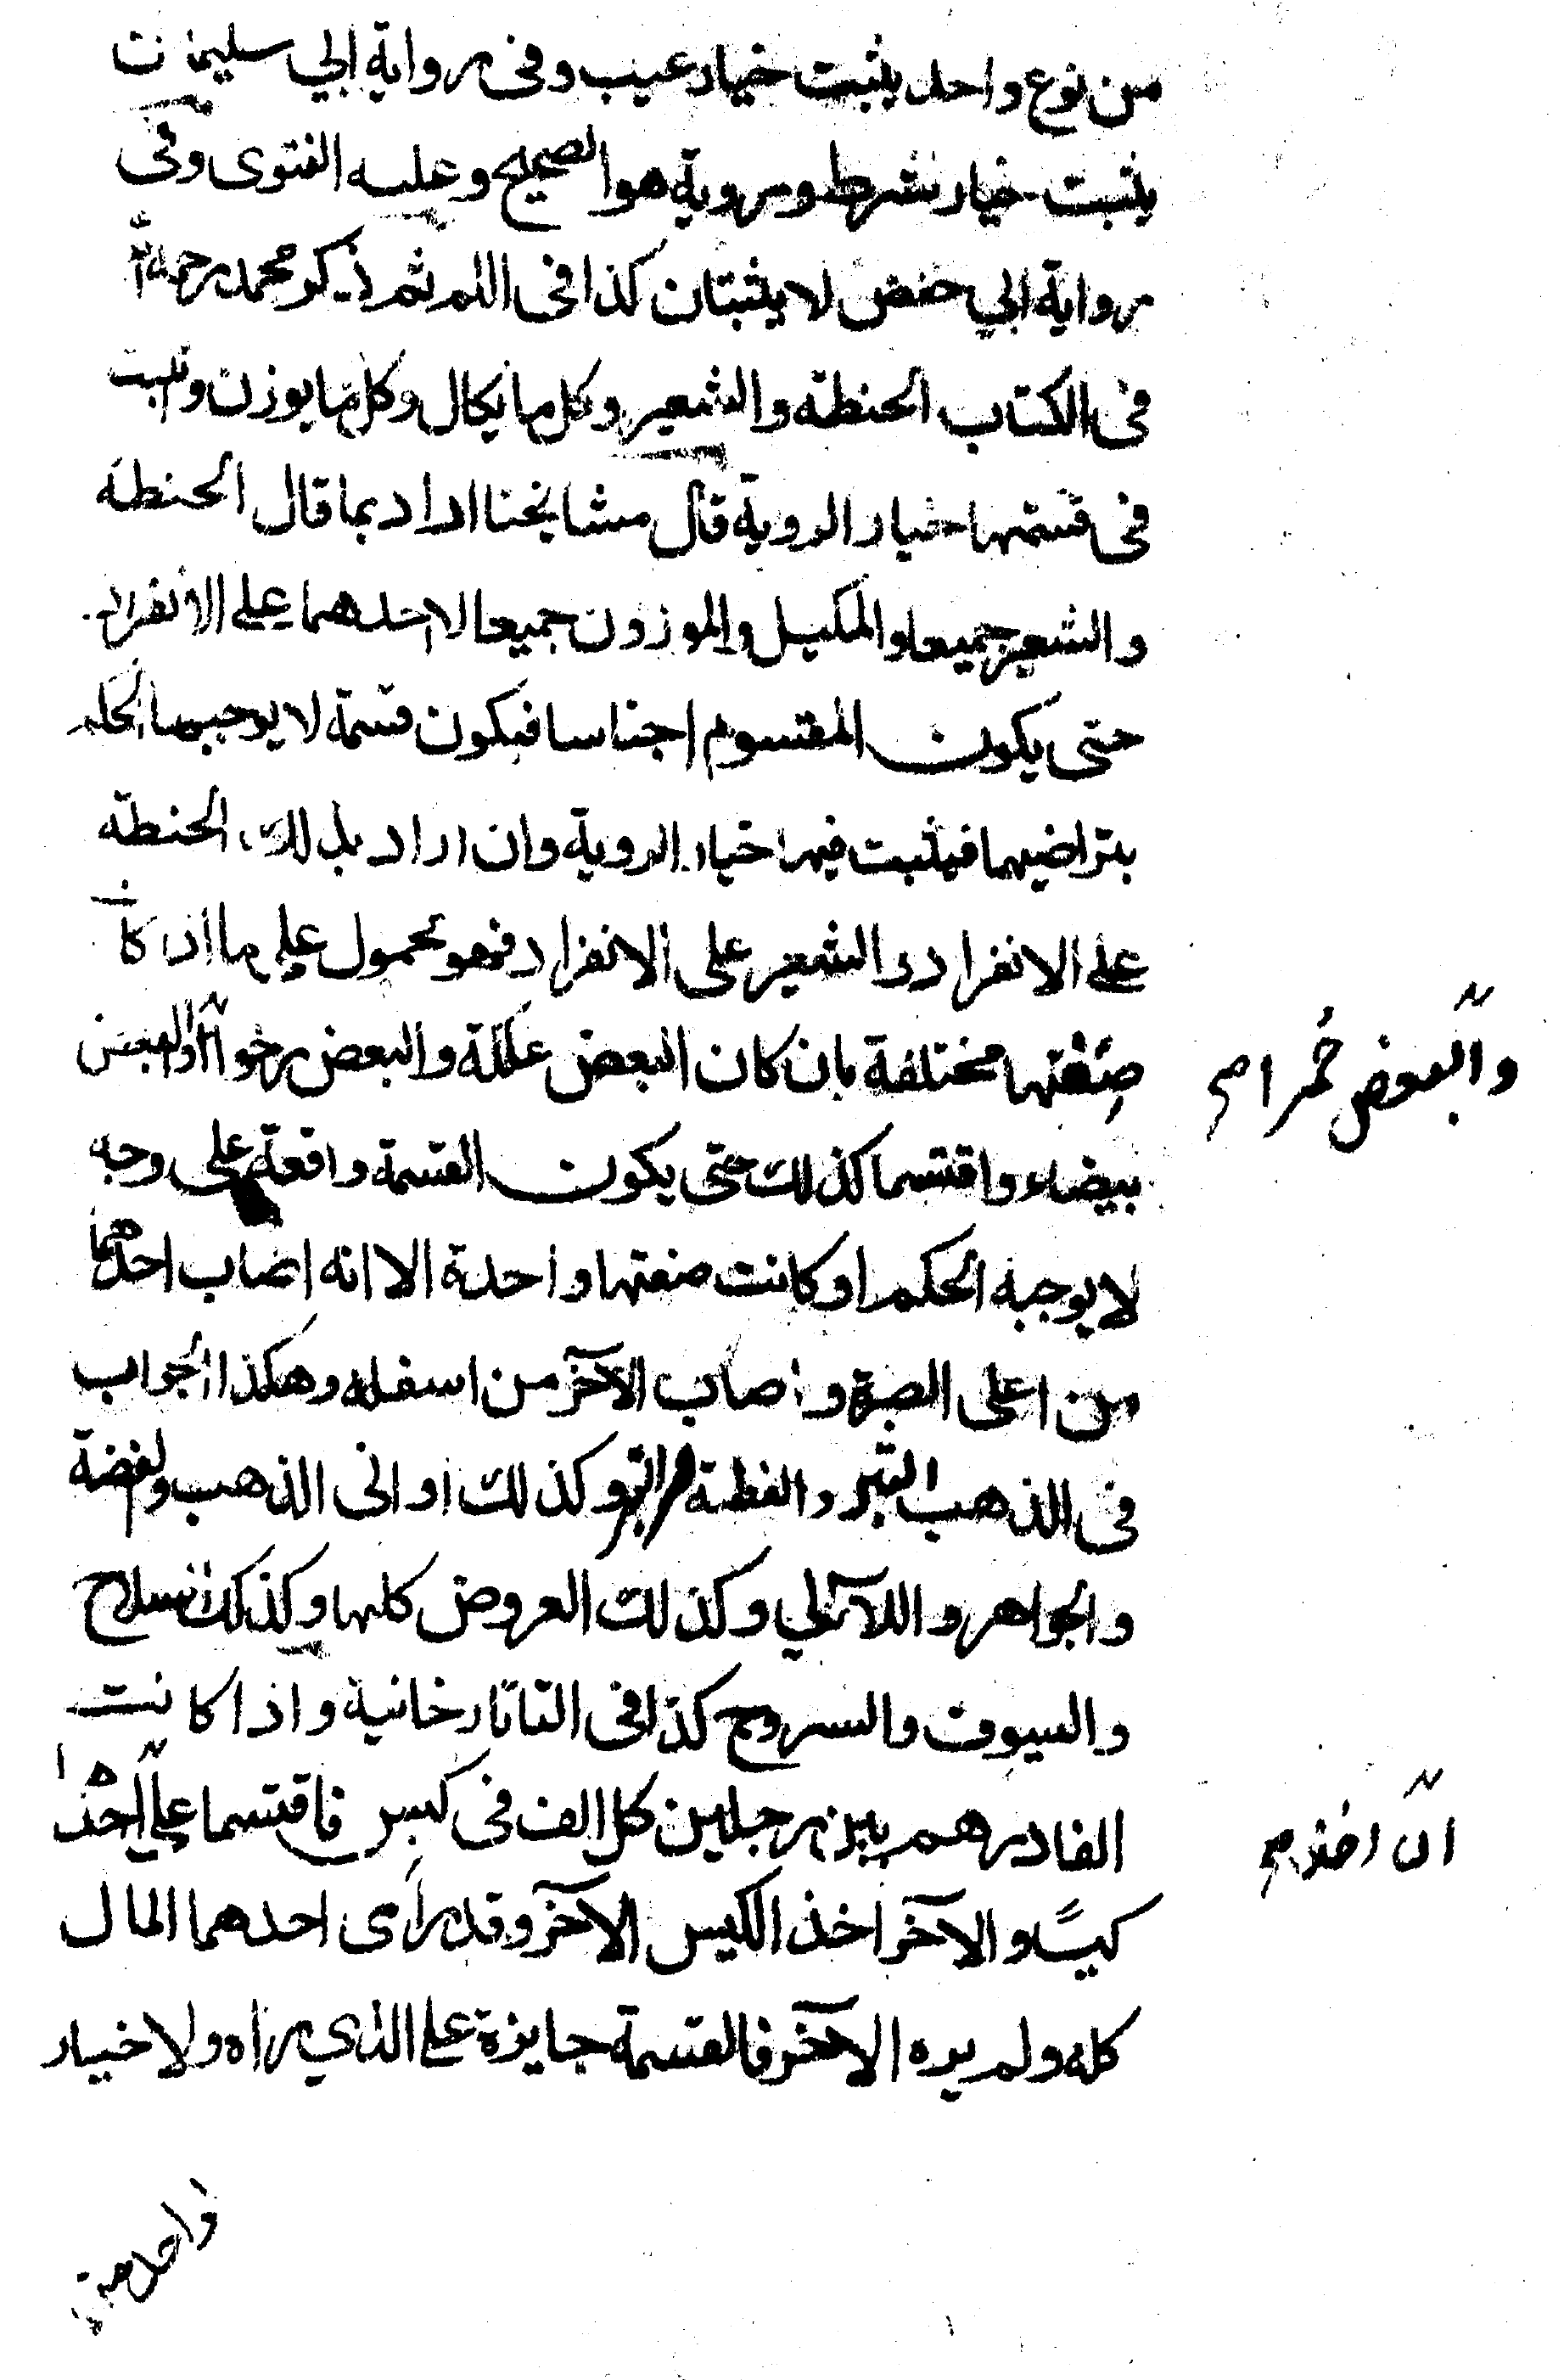 من نوع واحد يثبت خيار عيب وفى رواية ابي سليمان
يثبت خيار شرط وروية هو الصحيح وعليه الفتوى وفى
رواية ابي حفص لا يثبتان كذا فى ثم ذكر محمد رحمه الله
فى الكتاب الحنطة والشعير وكل ما يكال وكل ما يوزن وتثبت
فى قسمتها خيار الروية قال مشايخنا اراد بما قال الحنطة
والشعير جميعا والمكيل والموزون جميعا لا احدهما على الانفراد
حتى يكون المقسوم اجناسا فيكون قسمة لا يوجبها الحكم
بتراضيهما فيثبت فيها خيار الروية وان اراد بذلك الحنطة
على الانفراد والشعير على الانفراد فهو محمول على ما اذا كان
صفتها مختلفة بان كان البعض علكة والبعض رخوا والبعض
والبعض حمرا صح
بيضاء واقتسما كذلك حتى يكون القسمة واقعة على وجه
لا يوجبه الحكم او كانت صفتها واحدة الا انه اصاب احدهما
من اعلى الصبرة واصاب الآخر من اسفله وهكذا الجواب
فى الذهب التبر والفضة التبر وكذلك اوانى الذهب والفضة
والجواهر واللآلي وكذلك العروض كلها وكذلك السلاح
والسيوف والسروج كذا فى التاتارخانية واذا كانت
الفا درهم بين رجلين كل الف فى كيس فاقتسما على احدهما
ان اخذ صح
كيسًا والآخر اخذ الكيس الآخر وقد رأى احدهما المال
كله ولم يره الآخر فالقسمة جايزة على الذي راه ولا خيار